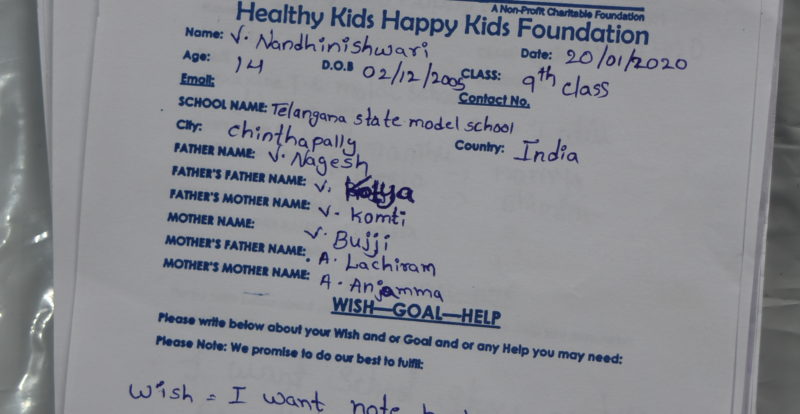 A Non-Profit Charitable Foundation
Healthy Kids Happy Kids Foundation
Name: V. Nandhinishwari Date: 20/01/2020
Age: 14 D.O.B 02/12/2005 CLASS: 9th class
Email: Contact No.
SCHOOL NAME: Telangana state model school
City: chinthapally Country: India
FATHER NAME: V. Nagesh
FATHER'S FATHER NAME: V.
FATHER'S MOTHER NAME: V. Komti
MOTHER NAME: V. Bujji
MOTHER'S FATHER NAME: A. Lachiram
MOTHER'S MOTHER NAME: A. Anjamma
WISH—GOAL—HELP
Please write below about your Wish and or Goal and or any Help you may need:
Please Note: We promise to do our best to fulfil:
Wish = I want note